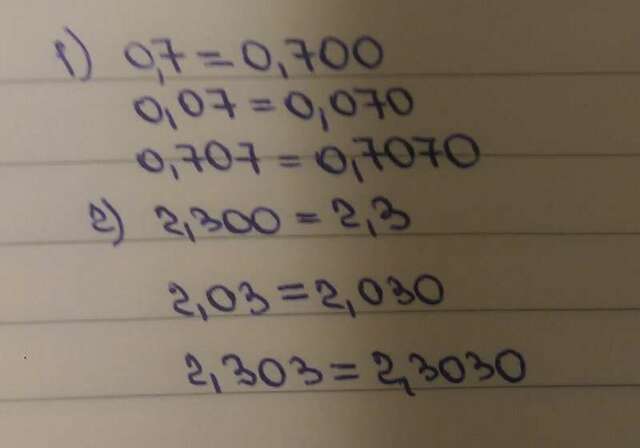 1) 0,7 = 0,700
0,07 = 0,070
0,707 = 0,7070
2) 2,300 = 2,3
2,03 = 2,030
2,303 = 2,3030